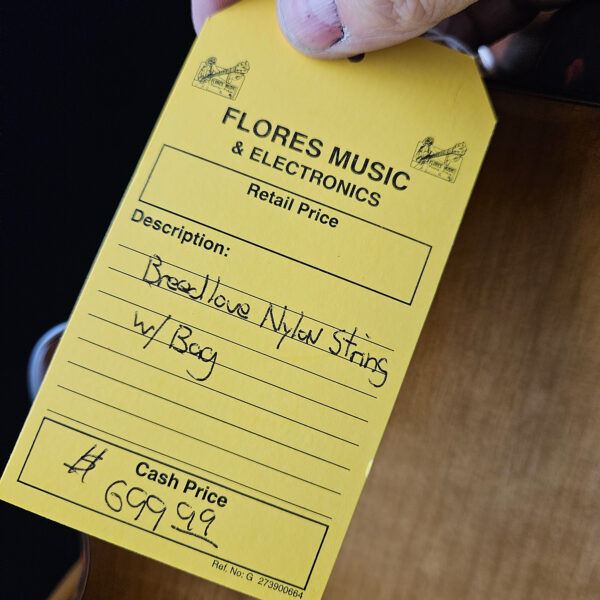 FLORES MUSIC
& ELECTRONICS
Retail Price
Description:
Breedlove Nylon String
w/ Bag
Cash Price
$ 699.99
Ref. No: G 273900664